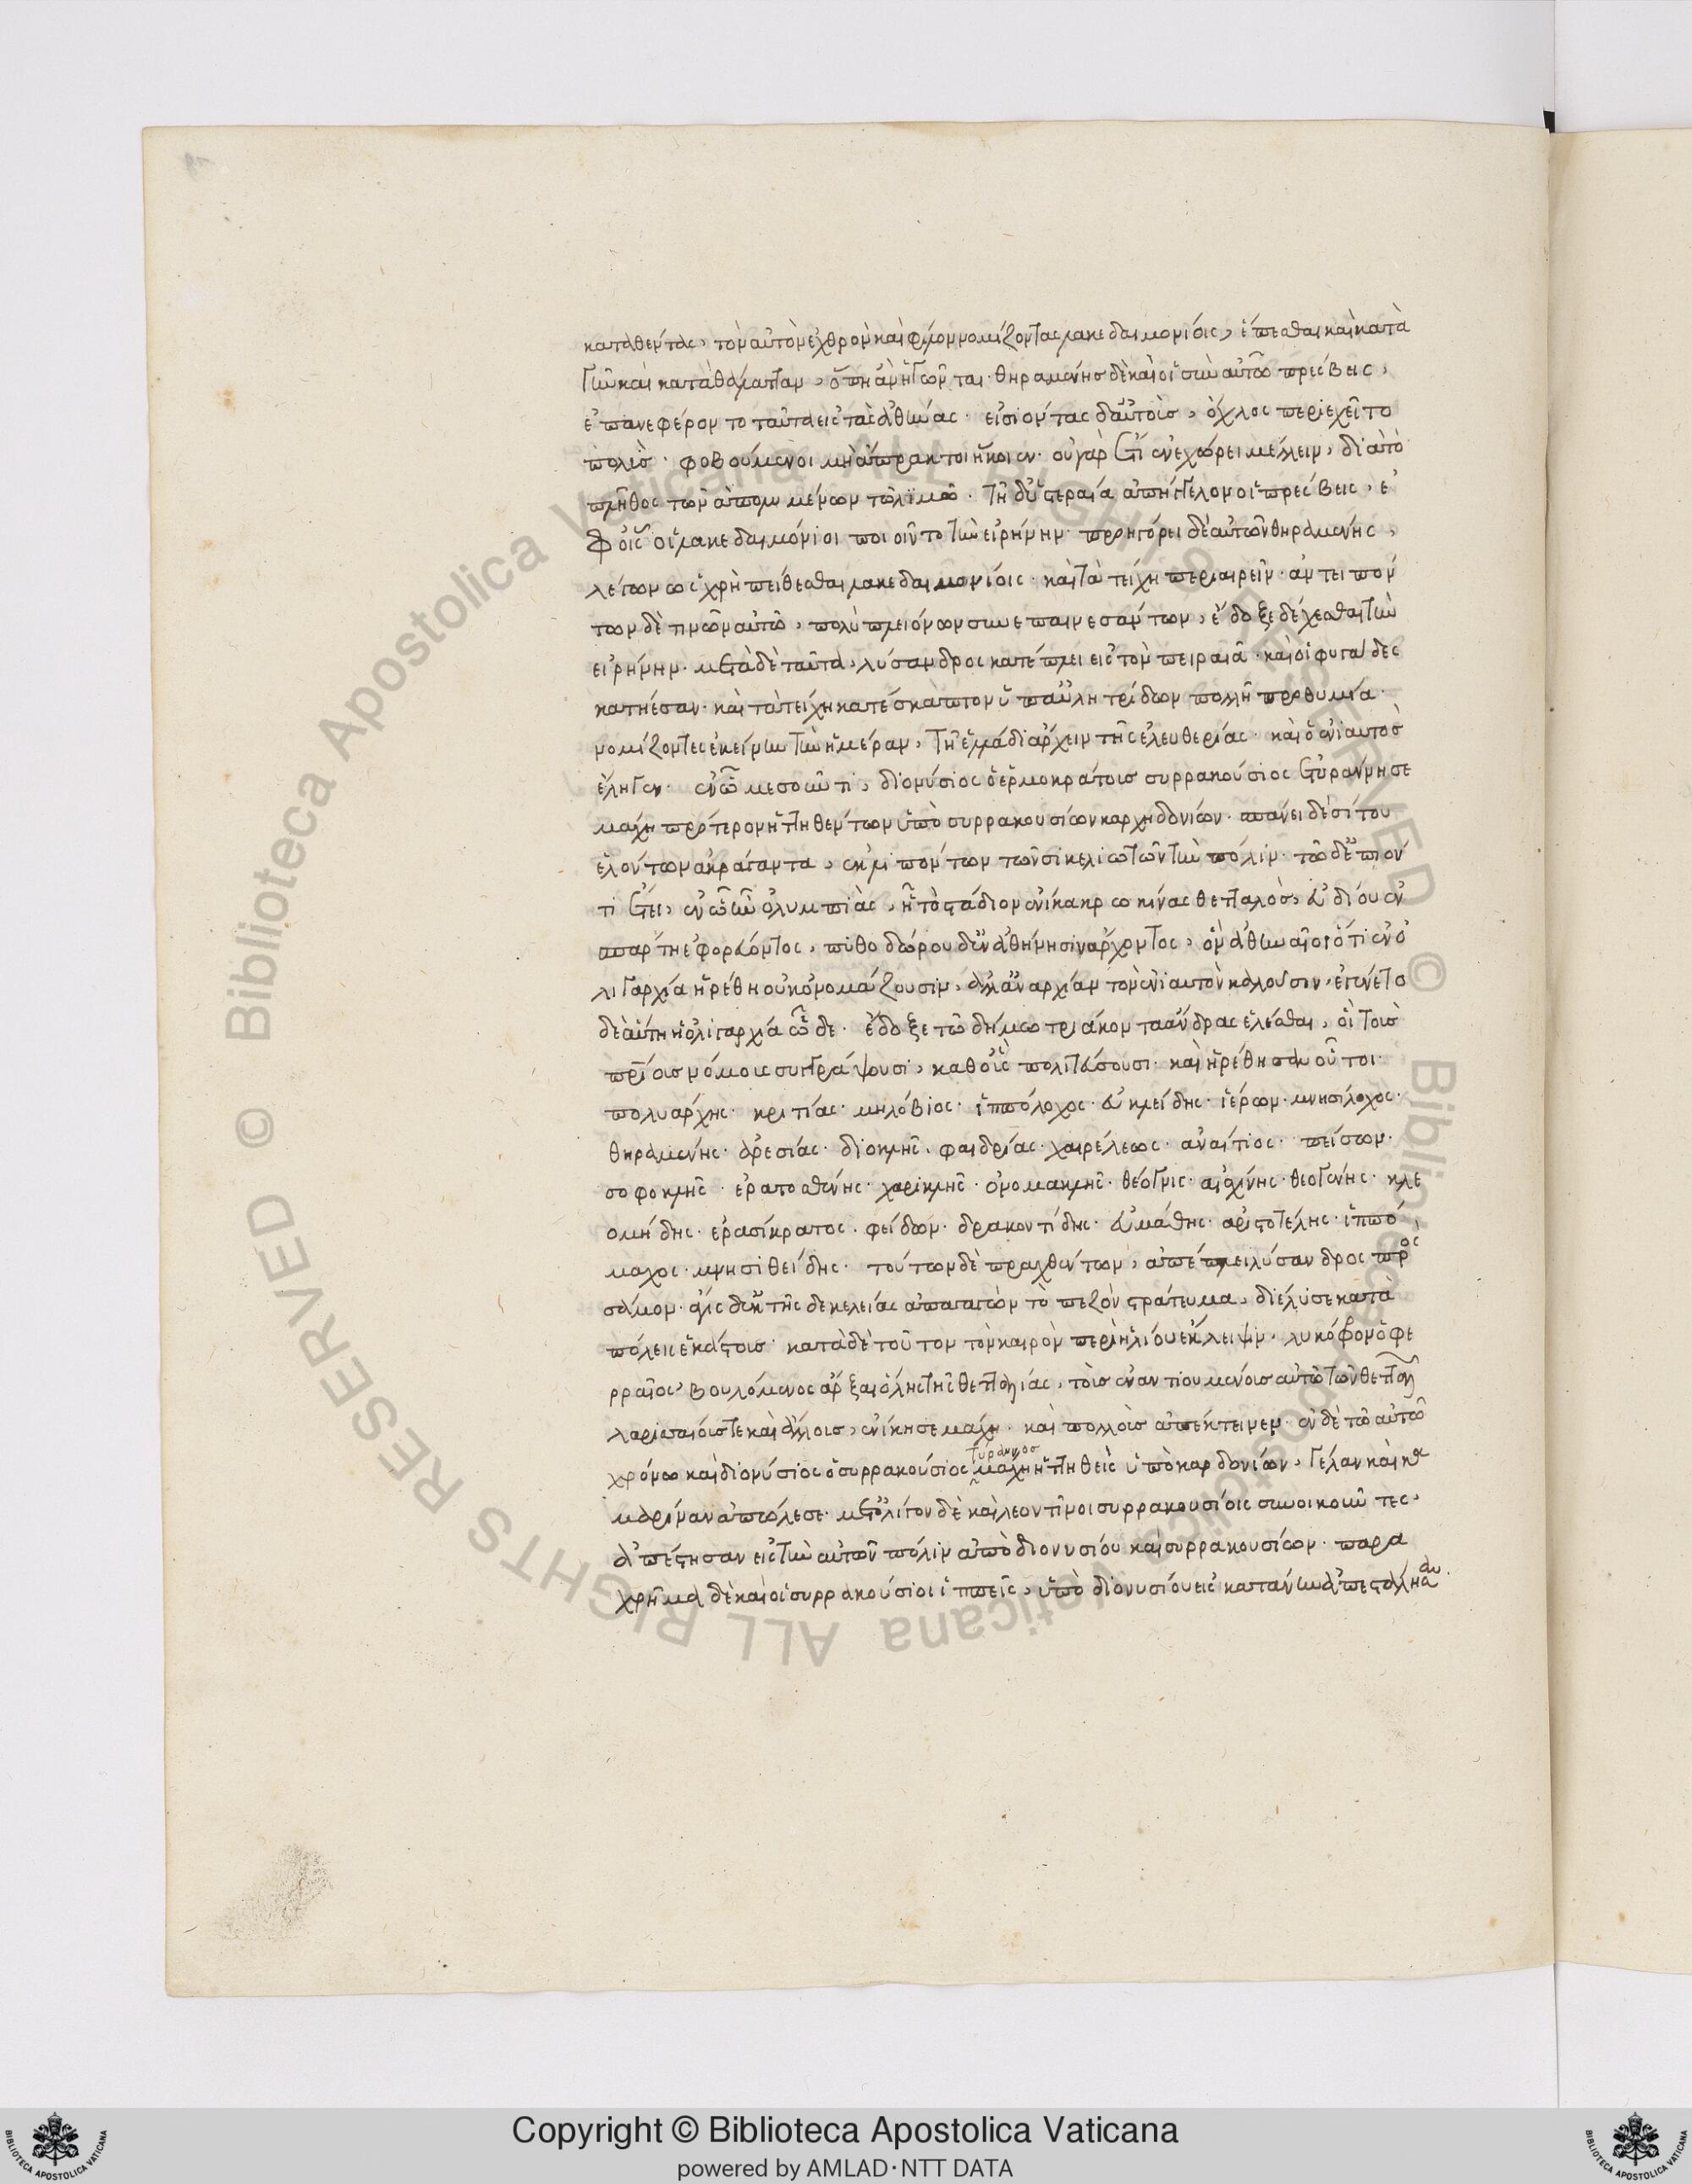 καταθέντας, τὸν αὐτὸν ἐχθρὸν καὶ φίλον νομίζοντας λακεδαιμονίοις, ἕπεσθαι καὶ κατὰ
γῆν καὶ κατὰ θάλατταν, ὅπη ἂν ἡγῶνται· θηραμένης δὲ καὶ οἱ σὺν αὐτῶ πρέσβεις,
ἐπανεφέροντο ταῦτα εἰς τὰς ἀθήνας· εἰσιόντας δ' αὐτοὺς, ὄχλος περιεχεῖτο
πολὺς· φοβούμενοι μὴ ἄπρακτοι ἥκοιεν· οὐ γὰρ ἔτι ἐνεχώρει μέλλειν, διὰ τὸ
πλῆθος τῶν ἀπολλυμένων τῶ λιμῶ· τῆ δ' ὑστεραία ἀπήγγελον οἱ πρέσβεις, ἐ
φ' οἷς οἱ λακεδαιμόνιοι ποιοῖντο τὴν εἰρήνην· προηγόρει δὲ αὐτῶν θηραμένης,
λέγων ὡς χρὴ πείθεσθαι λακεδαιμονίοις· καὶ τὰ τείχη περιαιρεῖν· ἀντειπόν
των δὲ τινῶν αὐτῶ, πολὺ πλειόνων συνεπαινεσάντων, ἔδοξε δέχεσθαι τὴν
εἰρήνην· μετὰ δὲ ταῦτα, λύσανδρος κατέπλει εἰς τὸν πειραιᾶ· καὶ οἱ φυγάδες
κατήεσαν· καὶ τὰ τείχη κατέσκαπτον ὑπ' αὐλητρίδων πολλῆ προθυμία·
νομίζοντες ἐκείνην τὴν ἡμέραν, τῆ ἑλλάδι ἄρχειν τῆς ἐλευθερίας· καὶ ὁ ἐνιαυτὸς
ἔληγεν· ἐν ὧ μεσοῦντι, διονύσιος ὁ ἑρμοκράτους συρρακούσιος ἐτυράννησε
μάχη πρότερον ἡττηθέντων ὑπὸ συρρακουσίων καρχηδονίων· σπάνει δὲ σίτου
ἑλόντων ἀκράγαντα, ἐκλιπόντων τῶν σικελιωτῶν τὴν πόλιν· τῶ δ' ἐπιόν
τι ἔτει, ἐν ὧ ἦν ὀλυμπιὰς, ἧ τὸ στάδιον ἐνίκα κρωκίνας θετταλὸς, εὐδίου ἐν
σπάρτη ἐφορεύοντος, πυθοδώρου δ' ἐν ἀθήνησιν ἄρχοντος, ὃν ἀθηναῖοι ὅτι ἐν ὀ
λιγαρχία ἡρέθη οὐκ ὀνομάζουσιν, ἀλλ' ἀναρχίαν τὸν ἐνιαυτὸν καλοῦσιν, ἐγένετο
δὲ αὕτη ἡ ὀλιγαρχία ὧδε· ἔδοξε τῶ δήμω τριάκοντα ἄνδρας ἑλέσθαι, οἳ τοὺς
πατρίους νόμους συγγράψουσι, καθ' οὓς πολιτεύσουσι· καὶ ἡρέθησαν οὗτοι·
πολυάρχης· κριτίας· μηλόβιος· ἱππόλοχος· εὐκλείδης· ἱέρων· μνησίλοχος·
θηραμένης· ἀρεσίας· διοκλῆς· φαιδρίας· χαιρέλεως· ἀναίτιος· πείσων·
σοφοκλῆς· ἐρατοσθένης· χαρικλῆς· ὀνομακλῆς· θέογνις· αἰσχίνης· θεογένης· κλε
ομήδης· ἐρασίστρατος· φείδων· δρακοντίδης· εὐμάθης· ἀριστοτέλης· ἱππό
μαχος· μνησιθείδης· τούτων δὲ πραχθέντων, ἀπέπλει λύσανδρος πρὸς
σάμον· ἆγις δ' ἐκ τῆς δεκελείας ἀπαγαγὼν τὸ πεζὸν στράτευμα, διέλυσε κατὰ
πόλεις ἑκάστους· κατὰ δὲ τοῦτον τὸν καιρὸν περὶ ἡλίου ἔκλειψιν, λυκόφρων ὁ φε
ρραῖος βουλόμενος ἄρξαι ὅλης τῆς θετταλίας, τοὺς ἐναντιουμένους αὐτῶ τῶν θετταλῶν
λαρισσαίους τε καὶ ἄλλους, ἐνίκησε μάχη· καὶ πολλοὺς ἀπέκτεινεν· ἐν δὲ τῶ αὐτῶ
τύραννος
χρόνω καὶ διονύσιος ὁ συρρακούσιος μάχη ἡττηθεὶς ὑπὸ καρδονίων, γέλαν καὶ κα
μαρίναν ἀπώλεσε· μετ' ὀλίγον δὲ καὶ λεοντῖνοι συρρακουσίοις συνοικοῦντες,
ἀπέστησαν εἰς τὴν αὐτῶν πόλιν ἀπὸ διονυσίου καὶ συρρακουσίων· παρα
χρῆμα δὲ καὶ οἱ συρρακούσιοι ἱππεῖς, ὑπὸ διονυσίου εἰς κατάνην ἀπεστάλησαν·
Copyright © Biblioteca Apostolica Vaticana
powered by AMLAD·NTT DATA